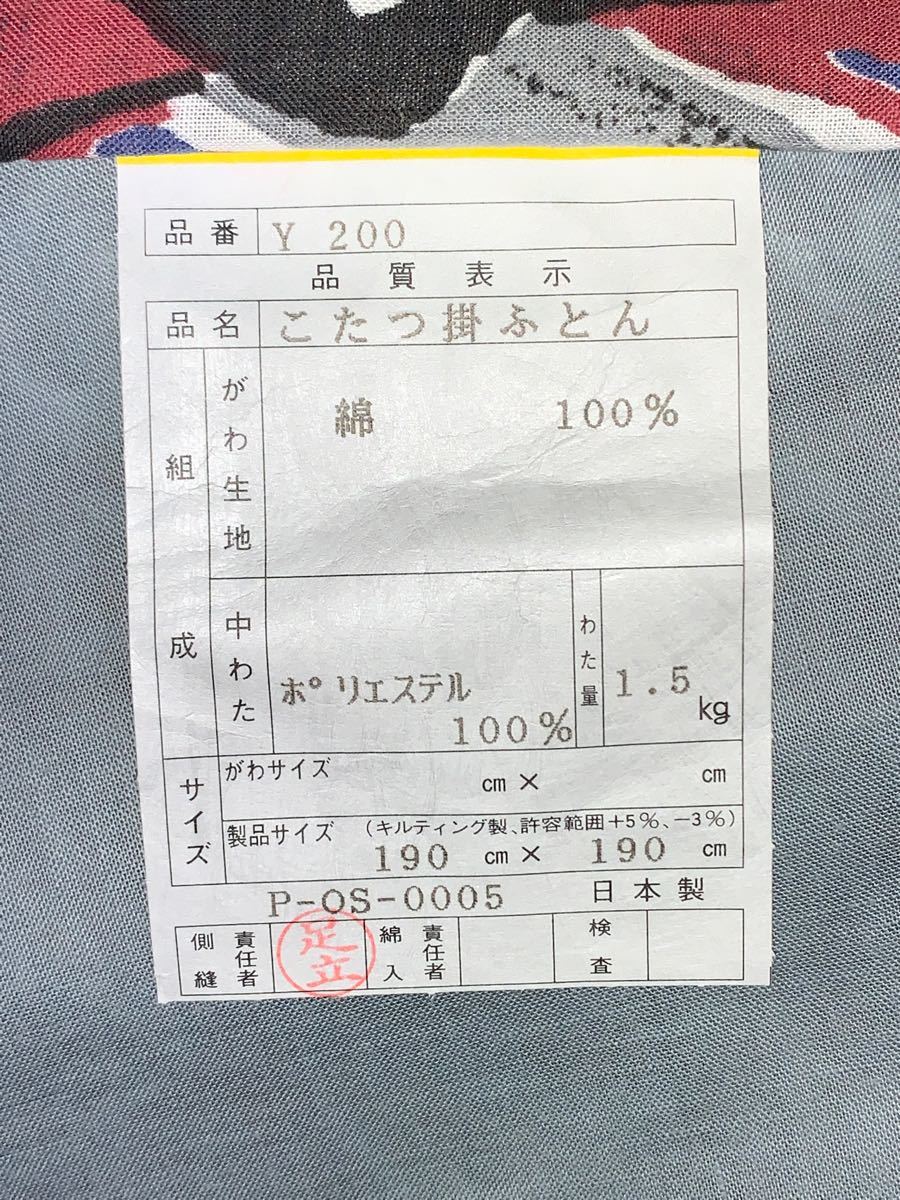 品番 Y 200
品質表示
品名 こたつ掛ふとん
組成
がわ生地
綿 100%
中わた
ポリエステル
100%
わた量
1.5 kg
サイズ
がわサイズ
cm × cm
製品サイズ (キルティング製、許容範囲+5%、-3%)
190 cm × 190 cm
P-OS-0005 日本製
側縫 責任者
足立
綿入 責任者
検査